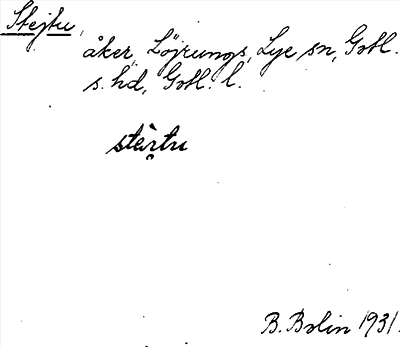 Stejtu,
åker, Löjrungs, Lye sn, Gotl.
s. hd, Gotl. l.
stèi̯tu
B. Bolin 1931.